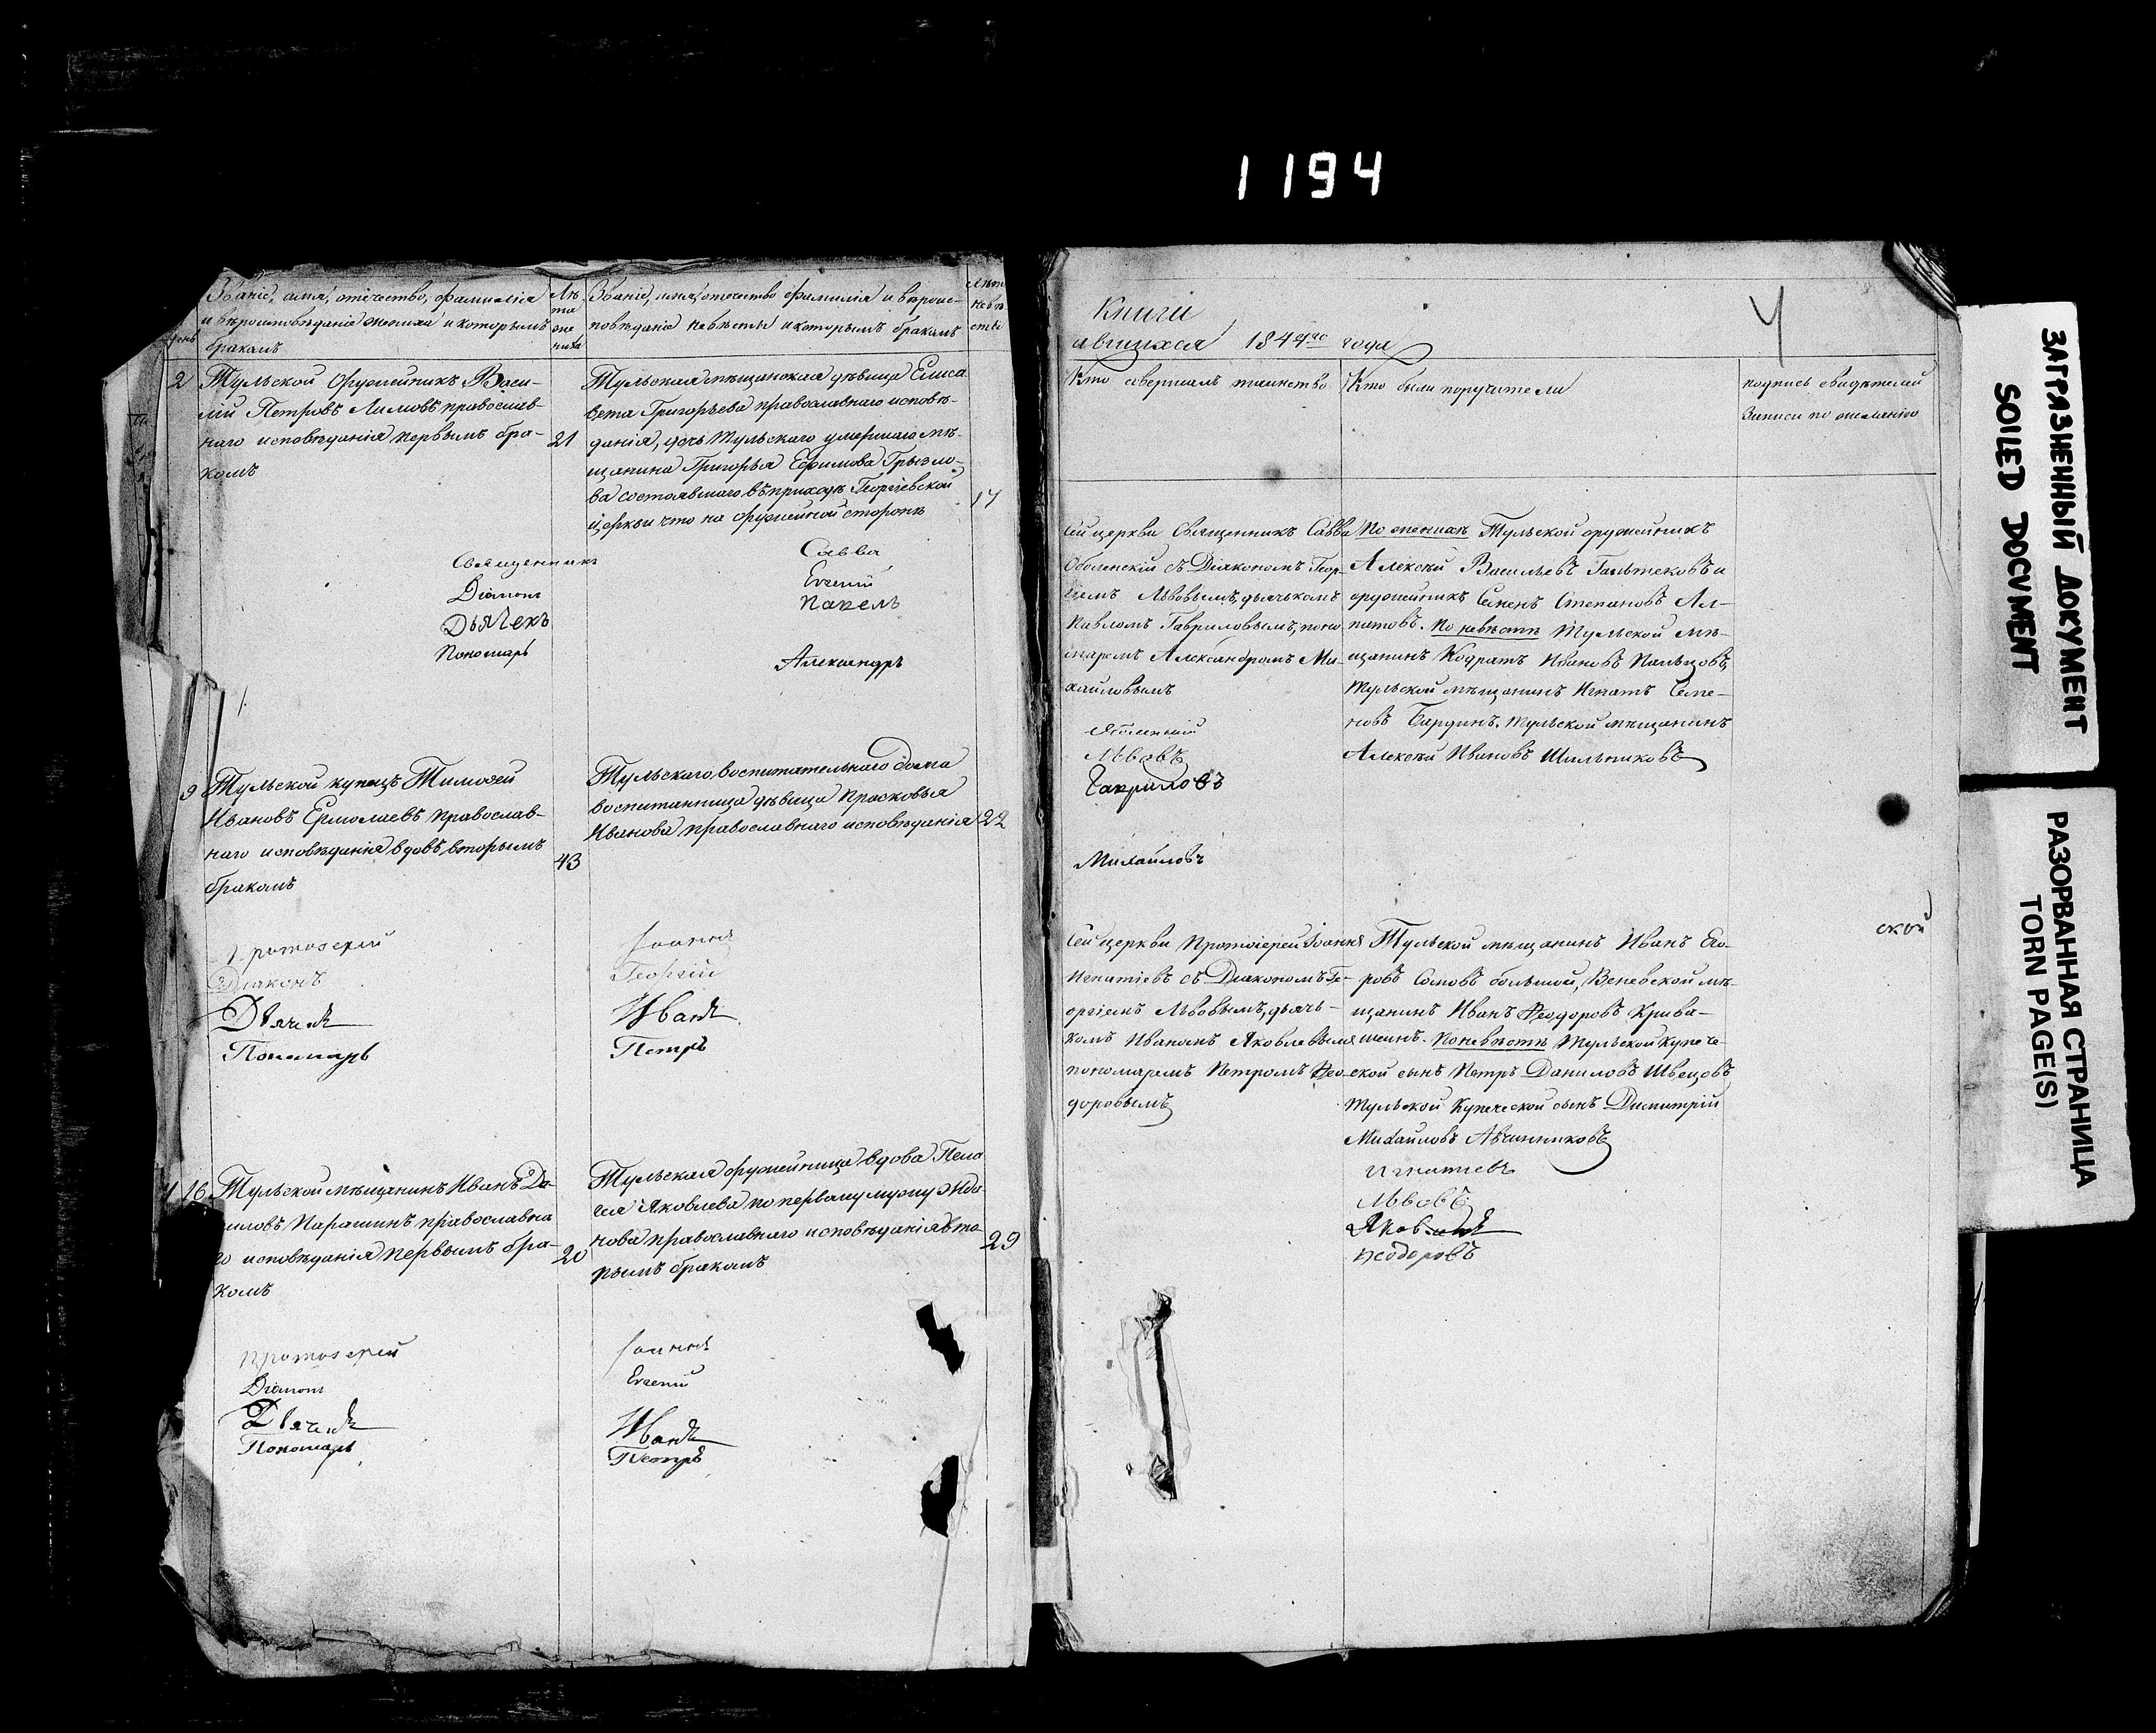 1194
Званіе, имя, отечество, фамилія
и вѣроисповѣданіе жениха и которымъ
бракомъ
Лѣ
та
же
ниха
Званіе, имя, отечество фамилія и вѣроис-
повѣданіе невѣсты и которымъ бракомъ
Лѣта
невѣ
сты
день
2
Тульской Оружейникъ Васи-
лій Петровъ Лимовъ православ-
наго исповѣданія первымъ бра-
комъ
21
Тульская мѣщанская дѣвица Елиса
вета Григорьева православнаго исповѣ-
данія, дочь Тульскаго умершаго мѣ-
щанина Григорья Ефимова Грызло-
ва состоявшаго въ приходѣ Георгіевской
церкви что на оружейной сторонѣ
17
Священникъ
Діаконъ
Дьячекъ
Пономарь
Савва
Евгеній
Павелъ
Александръ
9
Тульской купецъ Тимофей
Ивановъ Ермолаевъ православ-
наго исповѣданія вдовъ, вторымъ
бракомъ
43
Тульскаго воспитательнаго дома
воспитанница дѣвица Прасковья
Иванова православнаго исповѣданія
22
Протоіерей
Діаконъ
Дьячекъ
Пономарь
Іоаннъ
Георгій
Иванъ
Петръ
16
Тульской мѣщанинъ Иванъ Да-
ниловъ Парашинъ православна
го исповѣданія первымъ бра-
комъ
20
Тульская оружейница вдова Пела
гея Яковлева по первому мужу Жда-
нова православнаго исповѣданія вто-
рымъ бракомъ
29
Протоіерей
Діаконъ
Дьячекъ
Пономарь
Іоаннъ
Евгеній
Иванъ
Петръ
Книги
авшихся 1844го года
Кто совершалъ таинство
Кто были поручители
подпись свидѣтелей
Записи по желанію
Сей церкви Священникъ Савва
Оболенскій съ Діакономъ Геор-
гіемъ Львовымъ, дьячькомъ
Павломъ Гавриловымъ, поно
маремъ Александромъ Ми-
хайловымъ
Оболенскій
Львовъ
Гавриловъ
Михайловъ
По женихѣ Тульской оружейникъ
Алексѣй Васильевъ Гальтековъ и
оружейникъ Семенъ Степановъ Ал-
патовъ. По невѣстѣ Тульской мѣ-
щанинъ Кодратъ Ивановъ Пальцовъ,
Тульской мѣщанинъ Игнатъ Семе-
новъ Бардинъ. Тульской мѣщанинъ
Алексѣй Ивановъ Шильниковъ
Сей церкви Протоіерей Іоаннъ
Игнатіевъ съ Діакономъ Ге-
оргіемъ Львовымъ, дьячь-
комъ Иваномъ Яковлевымъ
пономаремъ Петромъ Фео-
доровымъ
Тульской мѣщанинъ Иванъ Его-
ровъ Сомовъ большой, Веневской мѣ-
щанинъ Иванъ Феодоровъ Крива-
шеинъ. По невѣстѣ Тульской купече-
ской сынъ Петръ Даниловъ Швецовъ
Тульской Купеческой сынъ Димитрій
Михайловъ Авчинниковъ
Игнатіевъ
Львовъ
Яковлевъ
Феодоровъ
ской
ЗАГРЯЗНЕННЫЙ ДОКУМЕНТ
SOILED DOCUMENT
РАЗОРВАННАЯ СТРАНИЦА
TORN PAGE(S)